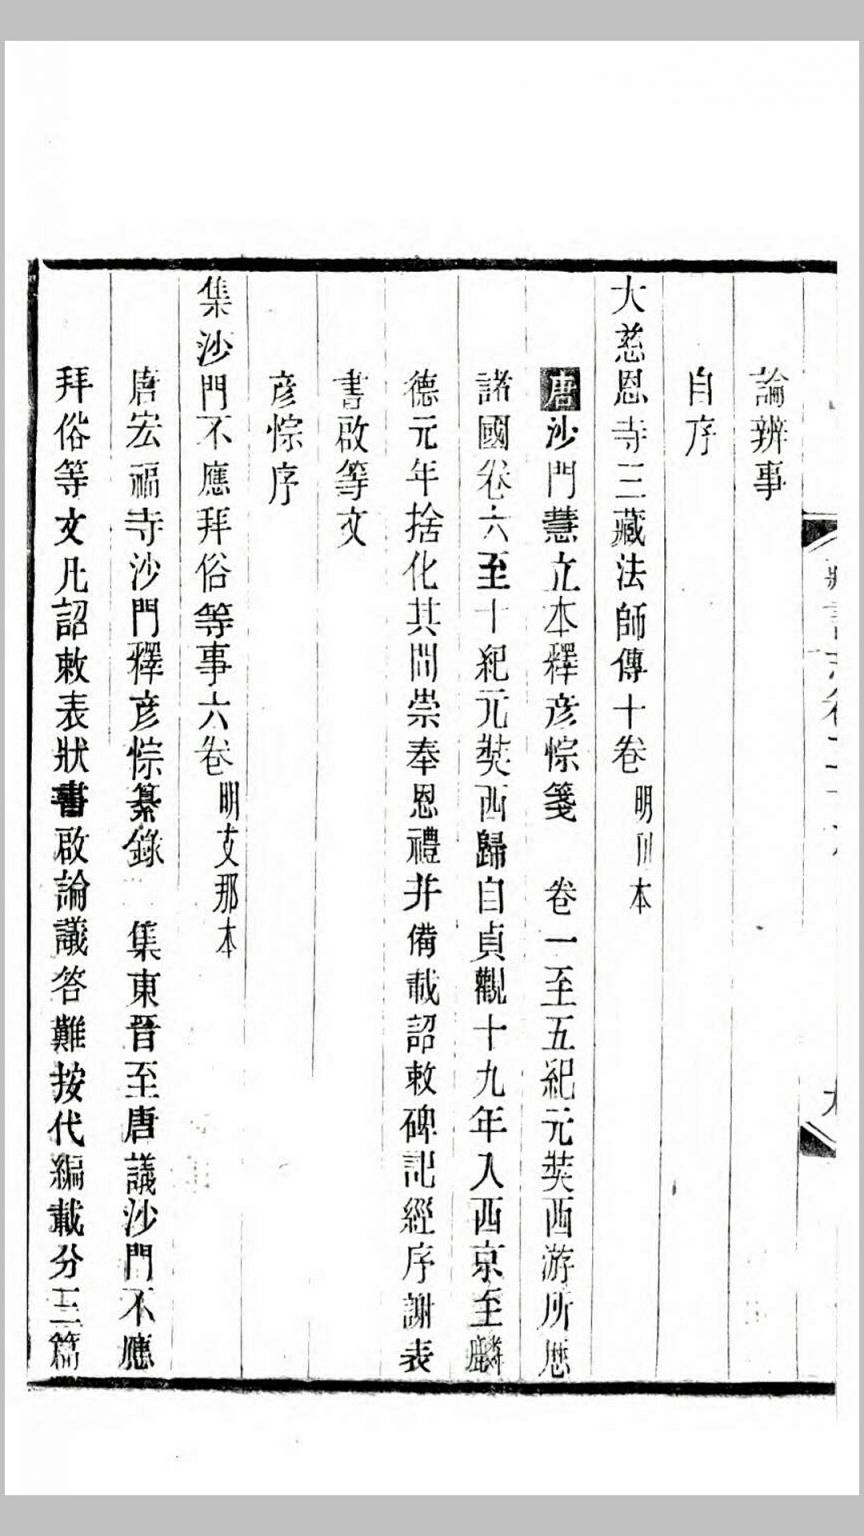 論辨事
自序
大慈恩寺三藏法師傳十卷 明刊本
唐沙門慧立本釋彥悰箋 卷一至五紀元奘西游所歷
諸國卷六至十紀元奘西歸自貞觀十九年入西京至麟
德元年捨化其間崇奉恩禮并備載詔敕碑記經序謝表
書啟等文
彥悰序
集沙門不應拜俗等事六卷 明支那本
唐宏福寺沙門釋彥悰纂錄 集東晉至唐議沙門不應
拜俗等文凡詔敕表狀書啟論議答難按代編載分三篇